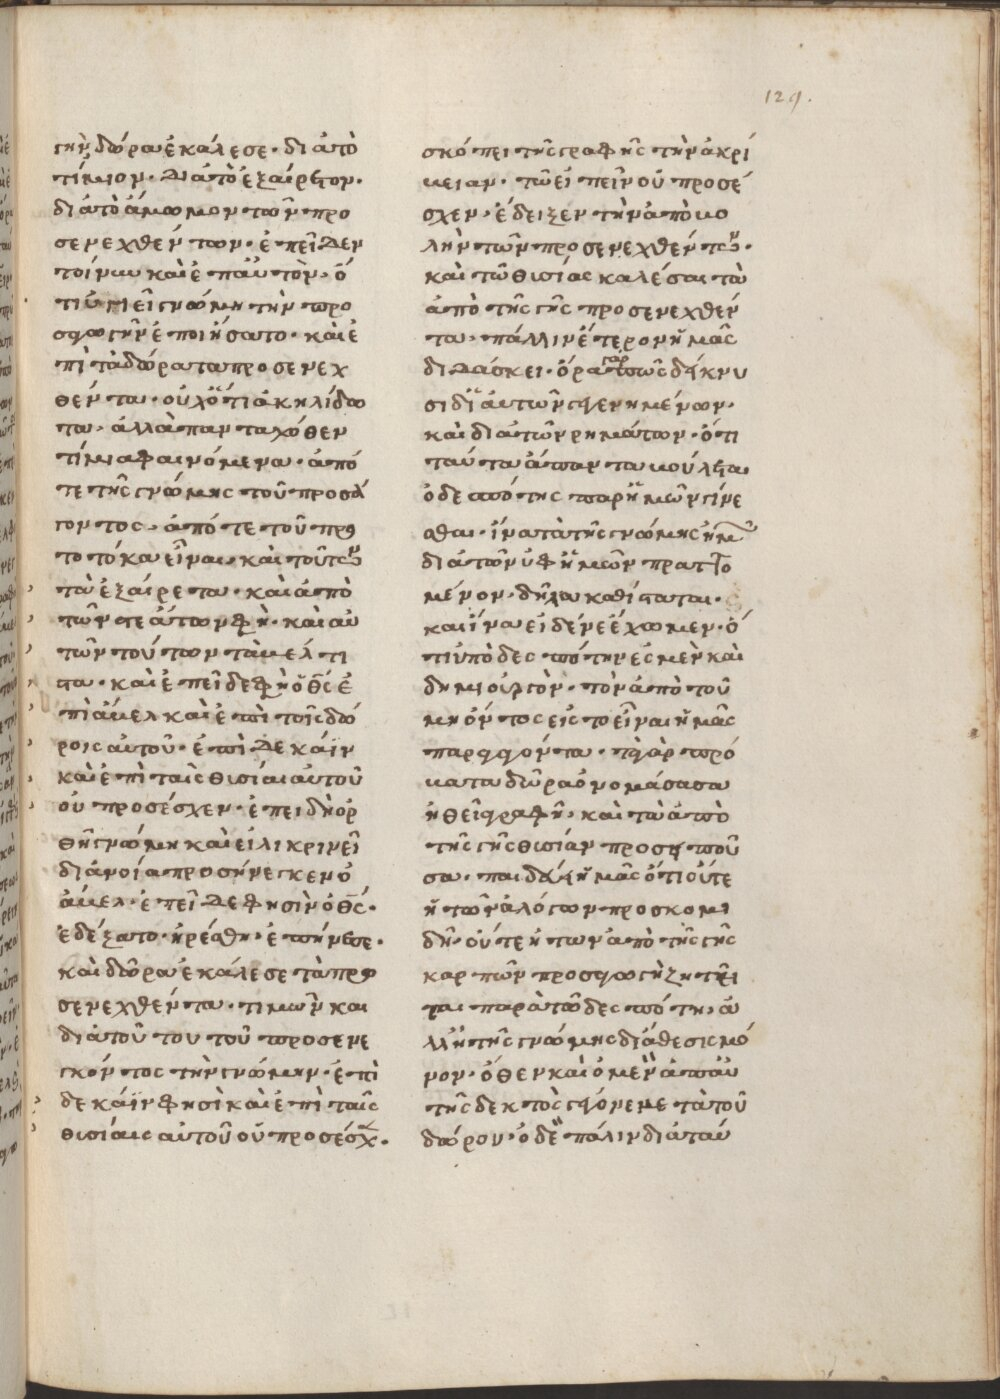 129.
τὴν δῶρα ἐκάλεσε· διὰ τὸ
τίμιον· διὰ τὸ ἐξαίρετον·
διὰ τὸ ἄμωμον τῶν προ
σενεχθέντων· ἐπεῖδεν
τοίνυν καὶ ἐπ αὐτὸν· ὅ
τι ὑγιεῖ γνώμη τὴν προ
σαγωγὴν ἐποιήσατο· καὶ ἐ
πὶ τὰ δῶρα τὰ προσενεχ
θέντα· οὐχ ὅτι ἀκηλίδω
τα· ἀλλὰ πανταχόθεν
τίμια φαινόμενα· ἀπό
τε τῆς γνώμης τοῦ προσά
γοντος· ἀπό τε τοῦ πρω
τότοκα εἶναι· καὶ τούτων
τὰ ἐξαίρετα· καὶ ἀπὸ
τῶν στεάτων φη· καὶ αὐ
τῶν τούτων τὰ μελ τι
στα· καὶ ἐπεῖδε φη ὁ θς ἐ
πὶ ἄμελ καὶ ἐπὶ τοῖς δώ
ροις αὐτοῦ· ἐπὶ δὲ κάϊν
καὶ ἐπὶ ταῖς θισίαι αὐτοῦ
οὐ προσέσχεν· ἐπειδὴ ὀρ
θῆ γνώμη καὶ εἰλικρινεῖ
διανοία προσήνεγκεν ὁ
ἄμελ· ἐπεῖδε φησὶν ὁ θς·
ἐδέξατο· ἠρέσθη· ἐπήνεσε·
καὶ δῶρα ἐκάλεσε τὰ προ
σενεχθέντα· τιμῶν και
διὰ τοῦ του τοῦ προσενε
γκόντος τὴν γνώμην· ἐπὶ
δε κάϊν φησὶ καὶ ἐπὶ ταῖς
θισίαις αὐτοῦ οὐ προσέσχ·
σκόπει τῆς γραφῆς τὴν ἀκρί
μειαν· τῶ εἰπεῖν οὐ προσέ
σχεν· ἔδειξεν τὴν ἀπομο
λὴν τῶν προσενεχθέντων·
καὶ τῶ θισίας καλέσαι τὰ
ἀπὸ τῆς γῆς προσενεχθέν
τα· πάλλιν ἕτερον ἡμᾶς
διδάσκει· ὅρα γὰρ πῶς δείκνυ
σι δι αὐτῶν γενημένων·
καὶ διὰ τῶν ρημάτων· ὅτι
ταῦτα ἅπαντα μούλεται
ὁ δεσπότης παρ ἡμῶν γίνε
σθαι· ἵνα τὰ τῆς γνώμης ἡμῶν
διὰ τῶν ὑφ ἡμῶν πραττο
μένον· δῆλα καθίσταται·
καὶ ἵνα εἰδέναι ἔχωμεν· ὅ
τι ὑπὸ δεσπότην ἐσμὲν καὶ
δημιουργὸν· τὸν ἀπὸ τοῦ
μὴ ὄντος εἰς τὸ εἶναι ἡμᾶς
παραγαγόντα· τὰ γὰρ πρό
ματα δῶρα ὀνομάσασα
ἡ θεῖα γραφὴ· καὶ τὰ ἀπὸ
τῆς γῆς θισίαν προσειποῦ
σα· παιδεύει ἡμᾶς ὅτι οὔτε
ἡ τῶν ἀλόγων προσκομι
δῆ· οὔτε ἡ των ἀπὸ τῆς γῆς
καρπῶν προσαγωγὴ ζητεῖ
ται παρὰ τῶ δεσπότη· ἀ
λλ ἢ τῆς γνώμης διάθεσις μό
νον· ὅθεν καὶ ὁ μὲν ἀπ αὐ
τῆς δεκτὸς γέγονε μετὰ τοῦ
δώρου· ὁ δὲ πάλιν διὰ ταύ